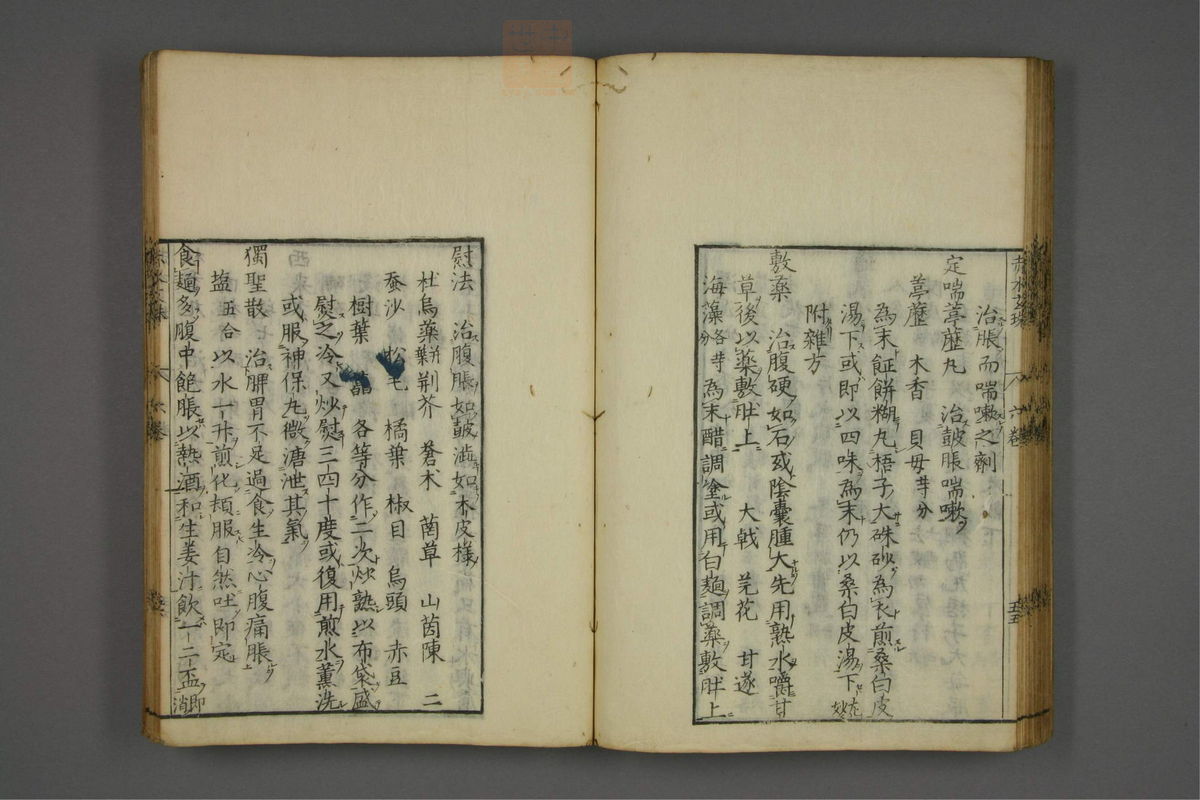 治脹而喘嗽之劑
定喘葶藶丸　治皷脹喘嗽
葶藶　木香　貝母等分
為末飪餅糊丸梧子大硃砂為衣煎桑白皮
湯下或即以四味為末仍以桑白皮湯下尤妙
附雜方
敷藥　治腹硬如石或陰囊腫大先用熟水嚼甘
草後以藥敷肚上　大戟　芫花　甘遂
海藻各等分為末醋調塗或用白麵調藥敷肚上
熨法　治腹脹如皷漸如木皮樣
杜烏藥葉荆芥　蒼朮　菌草　山茵陳　二
蚕沙　松毛　橘葉　椒目　烏頭　赤豆
樹葉　各等分作二次炒熟以布袋盛
熨之冷又炒熨三四十度或復用煎水薫洗
或服神保丸微溏泄其氣
獨聖散　治脾胃不足過食生冷心腹痛脹
塩五合以水一升煎化頓服自然吐即定
食麺多腹中飽脹以熱酒和生姜汁飲一二盃即消